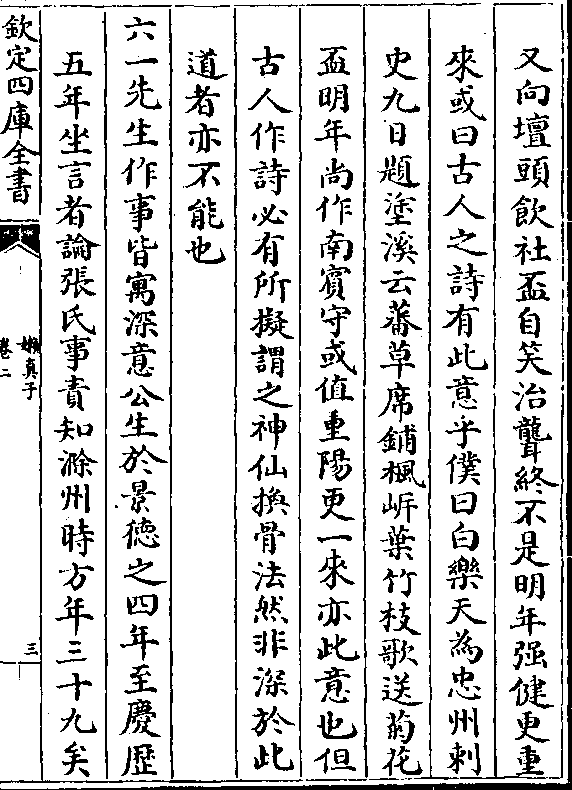 又向壇頭飲社盃自笑治聾終不是明年强健更重
來或曰古人之詩有此意乎僕曰白樂天為忠州刺
史九日題塗溪云蕃草席鋪楓岍葉竹枝歌送菊花
盃明年尚作南賓守或值重陽更一來亦此意也但
古人作詩必有所擬謂之神仙換骨法然非深於此
道者亦不能也
六一先生作事皆寓深意公生於景德之四年至慶歷
五年坐言者論張氏事責知滁州時方年三十九矣
欽定四庫全書
嬾真子
卷二
三